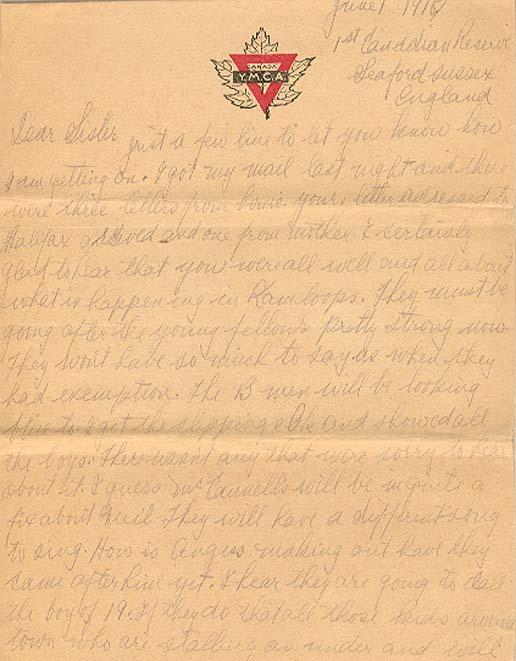 June 1 1918
1st Canadian Reserve
Seaford Sussex
England
CANADA
Y.M.C.A.
Dear Sister just a few line to let you know how
I am getting on. I got my mail last night and there
were three letters from home. yours letter adressed to
Halifax and one from Mother I certainly
glad to hear that you were all well and all about
what is happening in Kamloops. They must be
going after the young fellows pretty strong now.
They wont have so much to say as when they
had exemption. The B men will be looking
blue to I got the slippings Ok and showed all
the boys. There wasnt any that were sorry to hear
about it. I guess McCannells will be in quite a
fix about Neil They will have a different song
to sing. How is Angus making out have they
came after him yet. I hear they are going to call
the boy of 19. If they do that all those kids around
town who are stalling as under and will